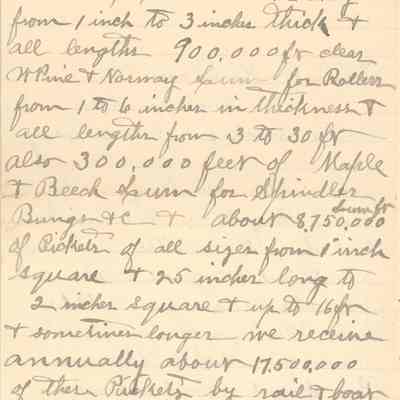 from 1 inch to 3 inches thick &
all lengths 900,000 ft clear
W Pine & Norway Lum for Rollers
from 1 to 6 inches in thickness &
all lengths from 3 to 30 ft
also 300,000 feet of Maple
& Beech Lum for Spindles
Bungs &c & about 8,750,000 Lum ft
of Pickets of all sizes from 1 inch
square & 25 inches long to
2 inches square & up to 16 ft
& sometimes longer we receive
annually about 17,500,000
of these Pickets by rail & boat